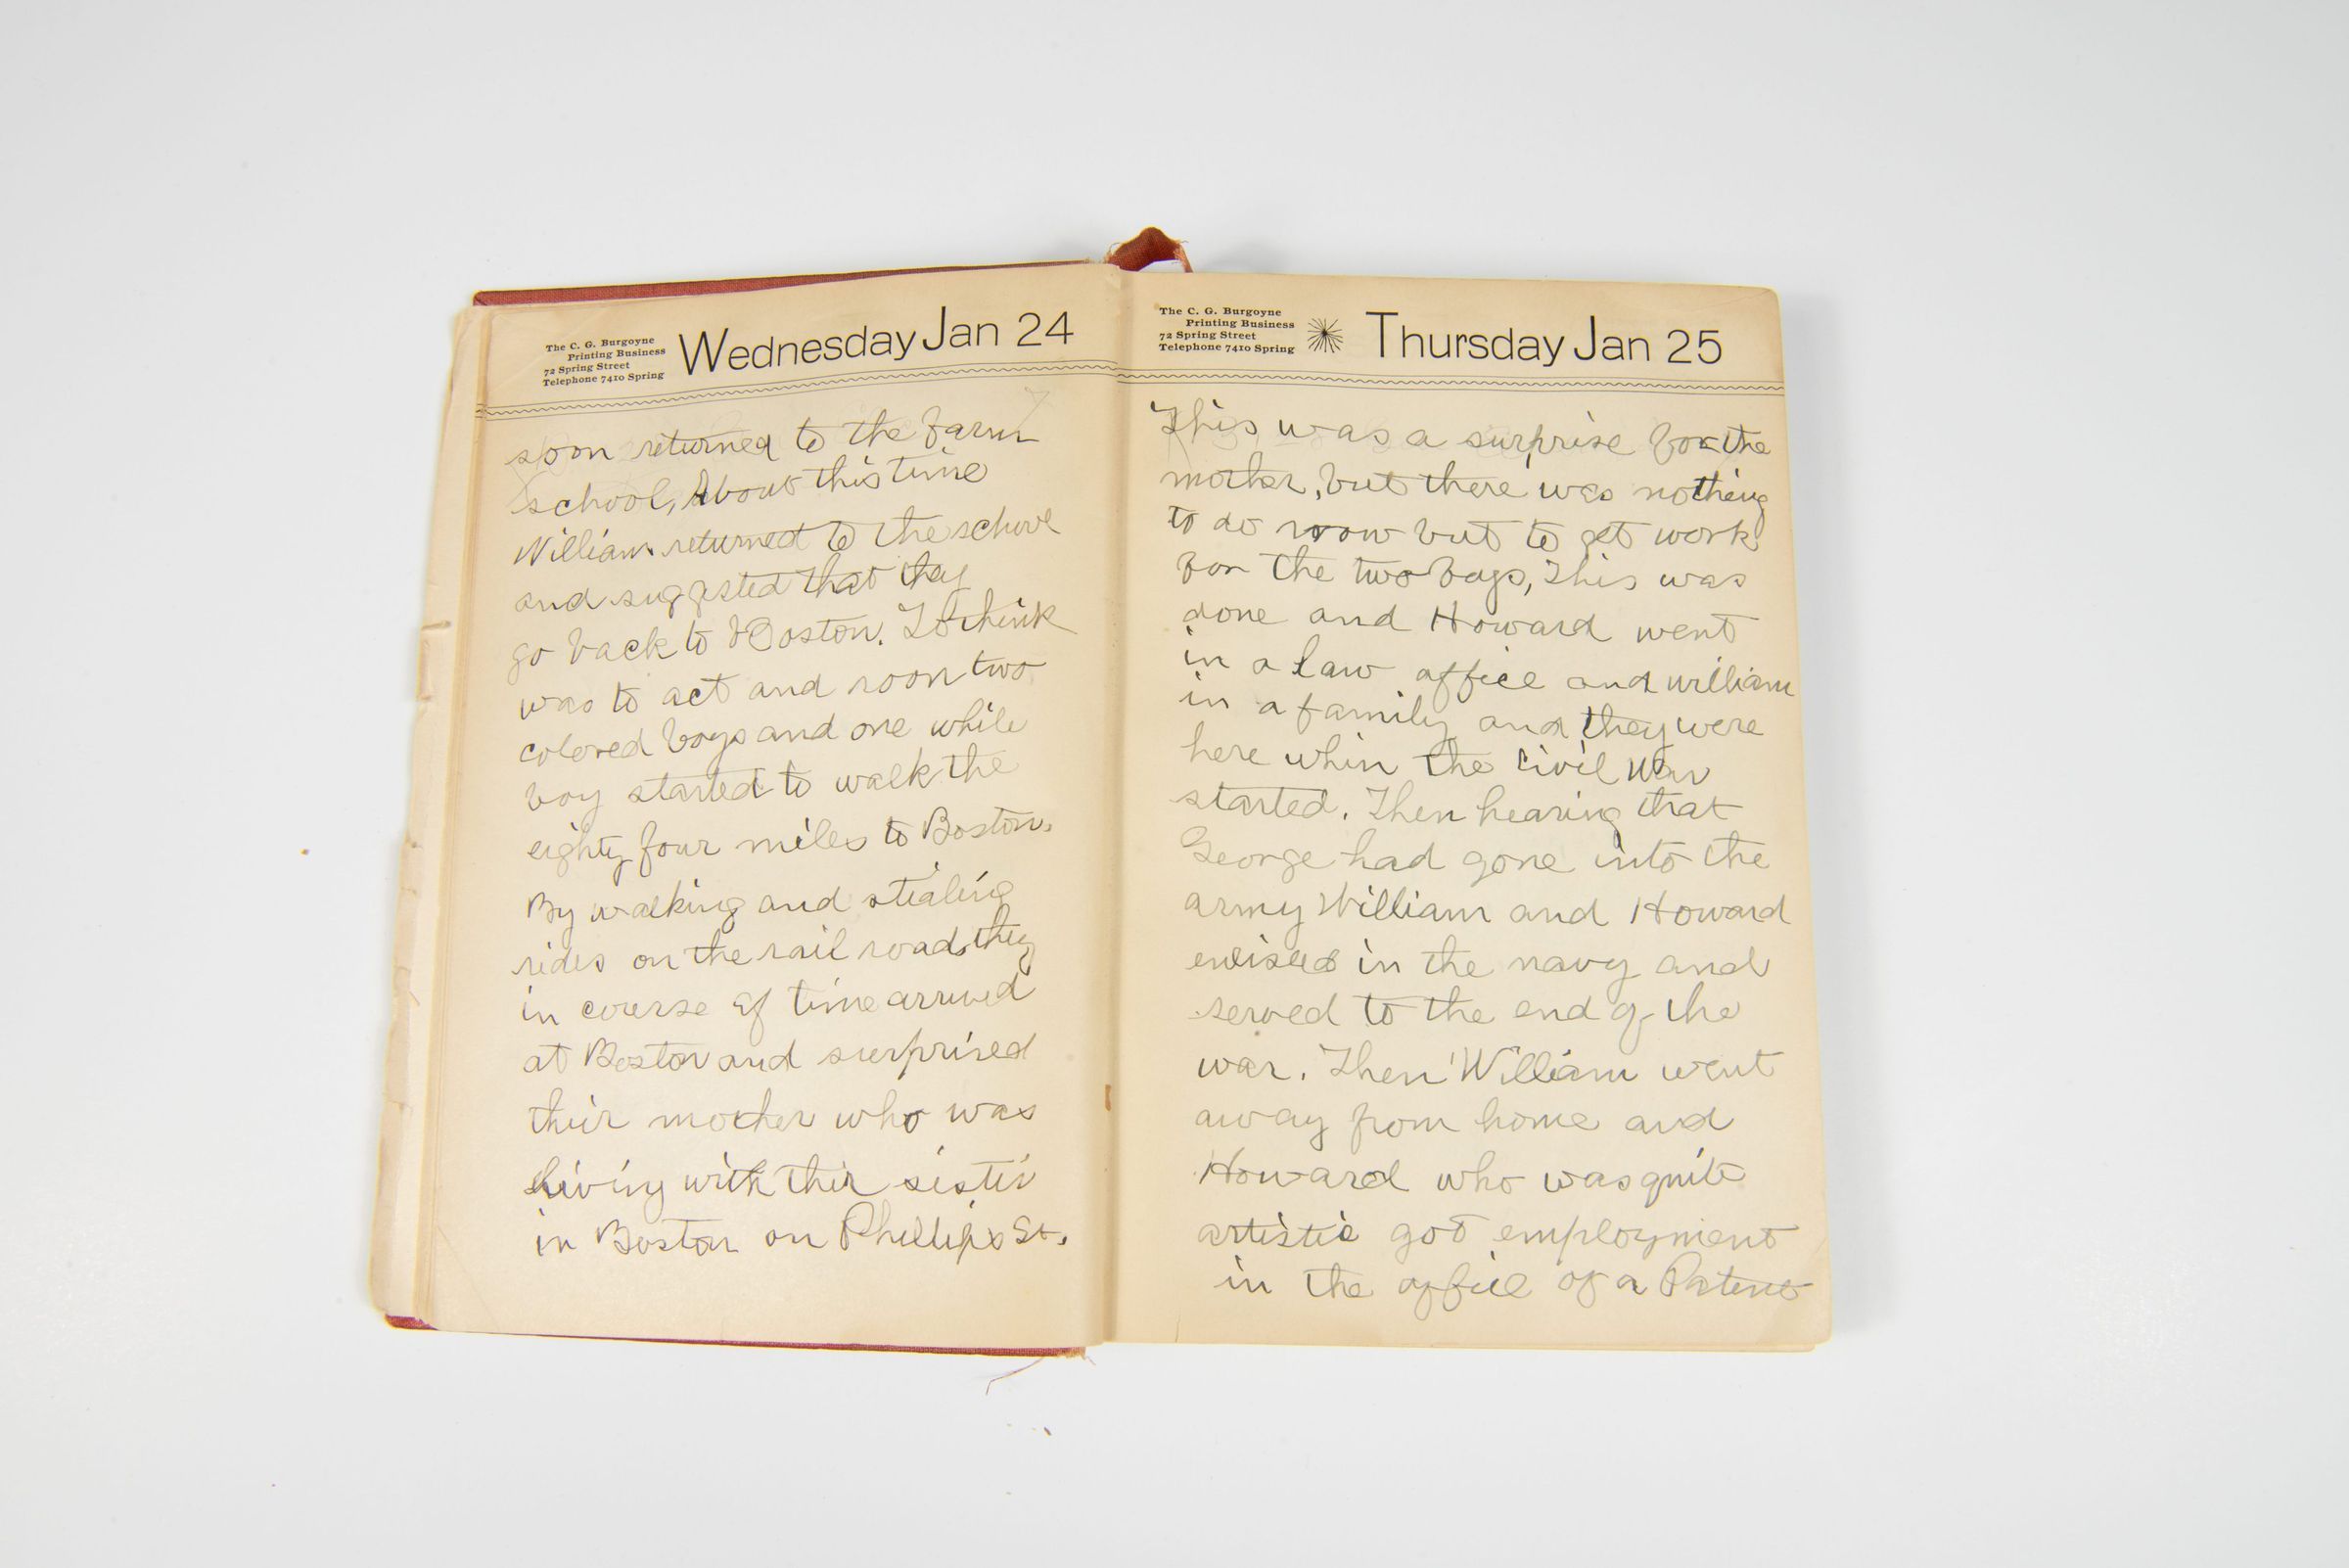 The C. G. Burgoyne
Printing Business
72 Spring Street
Telephone 7410 Spring
Wednesday Jan 24
soon returned to the farm
school, About this time
William returned to the school
and suggested that they
go back to Boston. To think
was to act and soon two
colored boys and one while
boy started to walk the
eighty four miles to Boston.
By walking and stealing
rides on the rail roads they
in course of time arrived
at Boston and surprised
their mother who was
living with their sister
in Boston on Phillips St.
The C. G. Burgoyne
Printing Business
72 Spring Street
Telephone 7410 Spring
Thursday Jan 25
This was a surprise for the
mother, but there was nothing
to do now but to get work
for the two boys, This was
done and Howard went
in a law office and william
in a family and they were
here when the Civil War
started. Then hearing that
George had gone into the
army William and Howard
enlisted in the navy and
served to the end of the
war. Then William went
away from home and
Howard who was quite
artistic got employment
in the office of a Patent